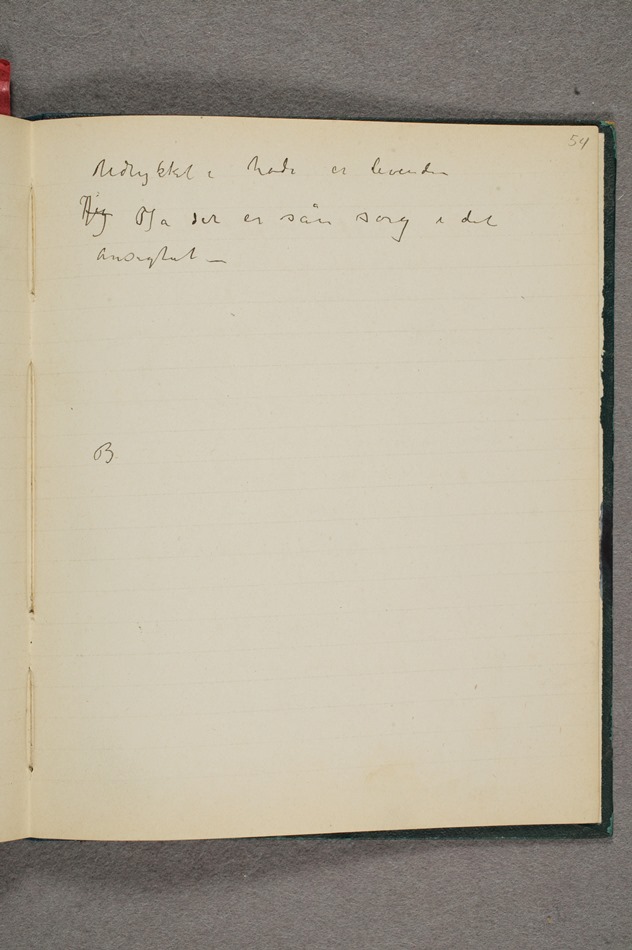 54
Udtrykket i hode er levende
Ja der er sån sorg i det
ansigtet —
B